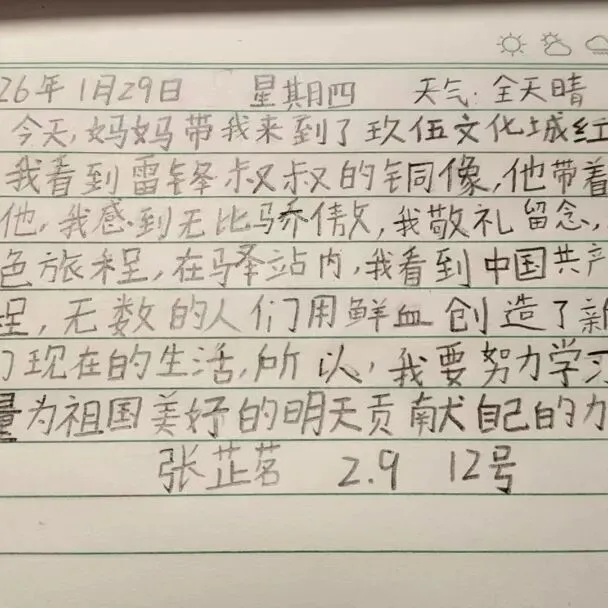 26年1月29日 星期四 天气:全天晴
今天,妈妈带我来到了玖伍文化城红
我看到雷锋叔叔的铜像,他带着
他,我感到无比骄傲,我敬礼留念,
色旅程,在驿站内,我看到中国共产
程,无数的人们用鲜血创造了新
们现在的生活,所以,我要努力学习
量为祖国美好的明天贡献自己的力
张芷茗 2.9 12号